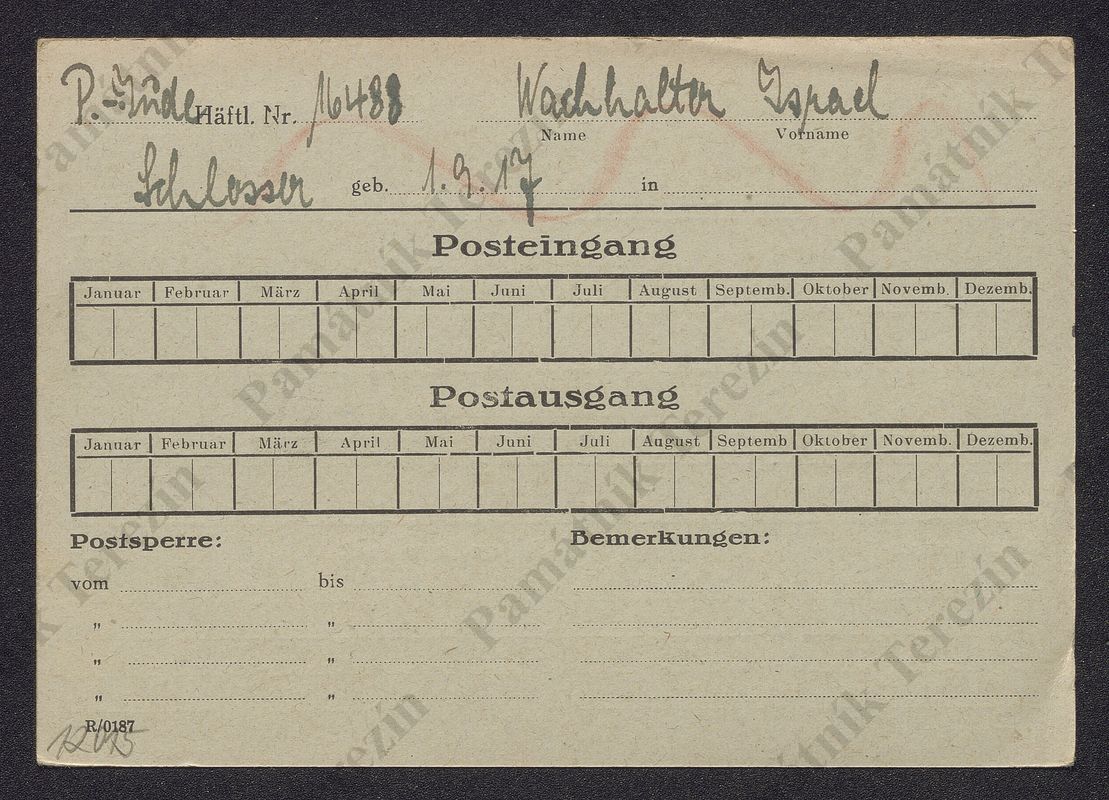 P.-Jude Häftl. Nr. 16488 Wachhalter Israel
Name Vorname
Schlosser geb. 1.9.17 in
Posteingang
Januar Februar März April Mai Juni Juli August Septemb. Oktober Novemb. Dezemb.
Postausgang
Januar Februar März April Mai Juni Juli August Septemb Oktober Novemb. Dezemb.
Postsperre: Bemerkungen:
vom bis
„ „
„ „
„ „
R/0187
Památník Terezín